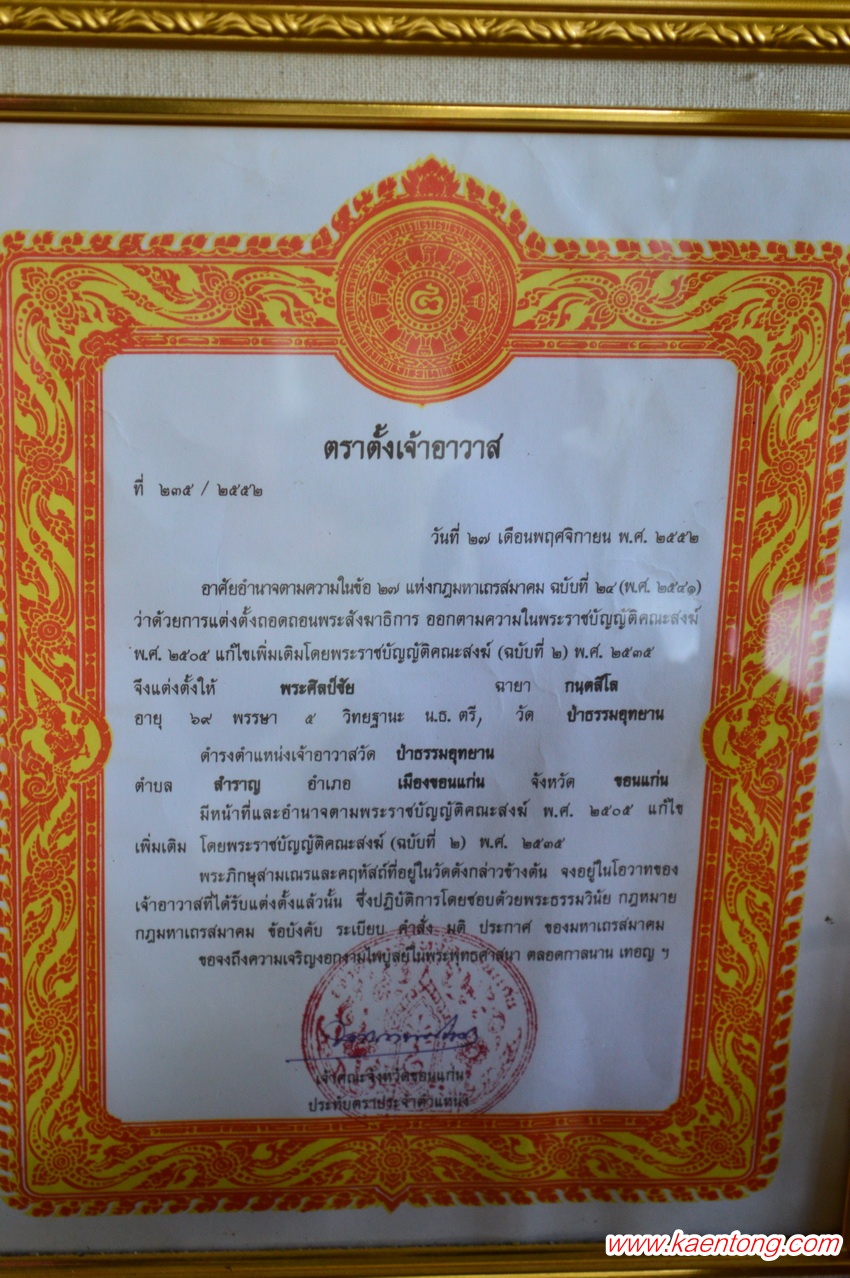 ตราตั้งเจ้าอาวาส
ที่ ๒๓๕ / ๒๕๕๒
วันที่ ๒๗ เดือนพฤศจิกายน พ.ศ. ๒๕๕๒
อาศัยอำนาจตามความในข้อ ๒๗ แห่งกฎมหาเถรสมาคม ฉบับที่ ๒๔ (พ.ศ. ๒๕๔๑)
ว่าด้วยการแต่งตั้งถอดถอนพระสังฆาธิการ ออกตามความในพระราชบัญญัติคณะสงฆ์
พ.ศ. ๒๕๐๕ แก้ไขเพิ่มเติมโดยพระราชบัญญัติคณะสงฆ์ (ฉบับที่ ๒) พ.ศ. ๒๕๓๕
จึงแต่งตั้งให้ พระศิลป์ชัย ฉายา กนฺตสีโล
อายุ ๖๙ พรรษา ๕ วิทยฐานะ น.ธ. ตรี, วัด ป่าธรรมอุทยาน
ดำรงตำแหน่งเจ้าอาวาสวัด ป่าธรรมอุทยาน
ตำบล สำราญ อำเภอ เมืองขอนแก่น จังหวัด ขอนแก่น
มีหน้าที่และอำนาจตามพระราชบัญญัติคณะสงฆ์ พ.ศ. ๒๕๐๕ แก้ไข
เพิ่มเติม โดยพระราชบัญญัติคณะสงฆ์ (ฉบับที่ ๒) พ.ศ. ๒๕๓๕
พระภิกษุสามเณรและคฤหัสถ์ที่อยู่ในวัดดังกล่าวข้างต้น จงอยู่ในโอวาทของ
เจ้าอาวาสที่ได้รับแต่งตั้งแล้วนั้น ซึ่งปฏิบัติการโดยชอบด้วยพระธรรมวินัย กฎหมาย
กฎมหาเถรสมาคม ข้อบังคับ ระเบียบ คำสั่ง มติ ประกาศ ของมหาเถรสมาคม
ขอจงถึงความเจริญงอกงามไพบูลย์ในพระพุทธศาสนา ตลอดกาลนาน เทอญ ฯ
เจ้าคณะจังหวัดขอนแก่น
ประทับตราประจำตำแหน่ง
www.kaentong.com